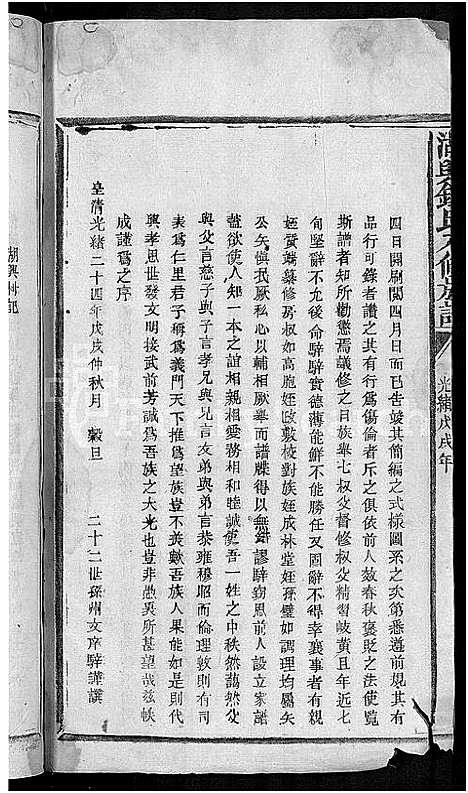 湖興錢氏六修族譜
光緒戊戌年
四日開刷閱四月日而已告竣其簡編之式樣圖系之次第悉遵前規其有
品行可錄者讚之其有行爲傷倫者斥之俱依前人效春秋褒貶之法使覽
斯譜者知所勸懲焉議修之日族舉七叔父督修叔父精習岐黄且年近七
旬堅辭不允後命騂騂實德薄能鮮不能勝任又固辭不得幸襄事者有親
姪賢端纂修房叔如高胞姪政敷校對族姪成林堂姪孫璧如調理均屬矢
公矢慎我厥私心以輔相厥舉而譜牒得以無謬騂窃思前人設立家譜
蓋欲使人知一本之誼相親相愛務相和睦誠使吾一姓之中秩然藹然父
與父言慈子與子言孝兄與兄言友弟與弟言恭雍穆昭而倫理敦則有司
表爲仁里君子稱爲義門天下推爲望族豈不美歟吾族人果能如是則代
興孝思世發文明接武前芳誠爲吾族之大光也豈非愚哀所甚望哉兹帙
成謹爲之序
皇清光緒二十四年戊戌仲秋月　穀旦
二十二世孫州文庠騂謹譔
湖興村記